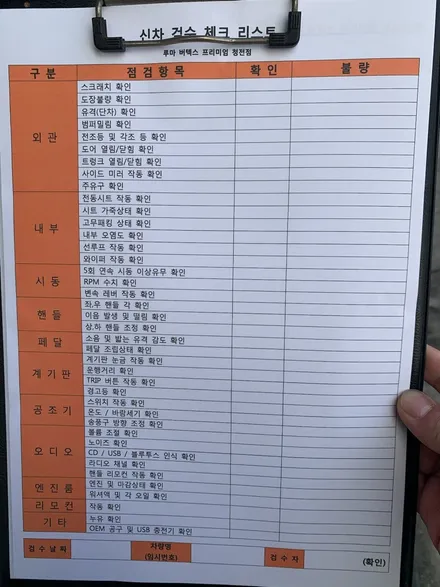 신차 검수 체크 리스트
루마 버텍스 프리미엄 점전점
구분 점검항목 확인 불량
외관
스크래치 확인
도장불량 확인
유격(단차) 확인
범퍼밀림 확인
전조등 및 각조 등 확인
도어 열림/닫힘 확인
트렁크 열림/닫힘 확인
사이드 미러 작동 확인
주유구 확인
내부
전동시트 작동 확인
시트 가죽상태 확인
고무패킹 상태 확인
내부 오염도 확인
선루프 작동 확인
와이퍼 작동 확인
시동
5회 연속 시동 이상유무 확인
RPM 수치 확인
변속 레버 작동 확인
핸들
좌,우 핸들 각 확인
이음 발생 및 떨림 확인
상,하 핸들 조정 확인
페달
소음 및 밟는 유격 감도 확인
페달 조립상태 확인
계기판
계기판 눈금 작동 확인
운행거리 확인
TRIP 버튼 작동 확인
경고등 확인
공조기
스위치 작동 확인
온도 / 바람세기 확인
송풍구 방향 조정 확인
오디오
볼륨 조절 확인
노이즈 확인
CD / USB / 블루투스 인식 확인
라디오 채널 확인
핸들 리모컨 작동 확인
엔진룸
엔진 및 마감상태 확인
워셔액 및 각 오일 확인
리모컨
작동 확인
기타
누유 확인
OEM 공구 및 USB 충전기 확인
검수날짜 차량명 (임시번호) 검수자 (확인)